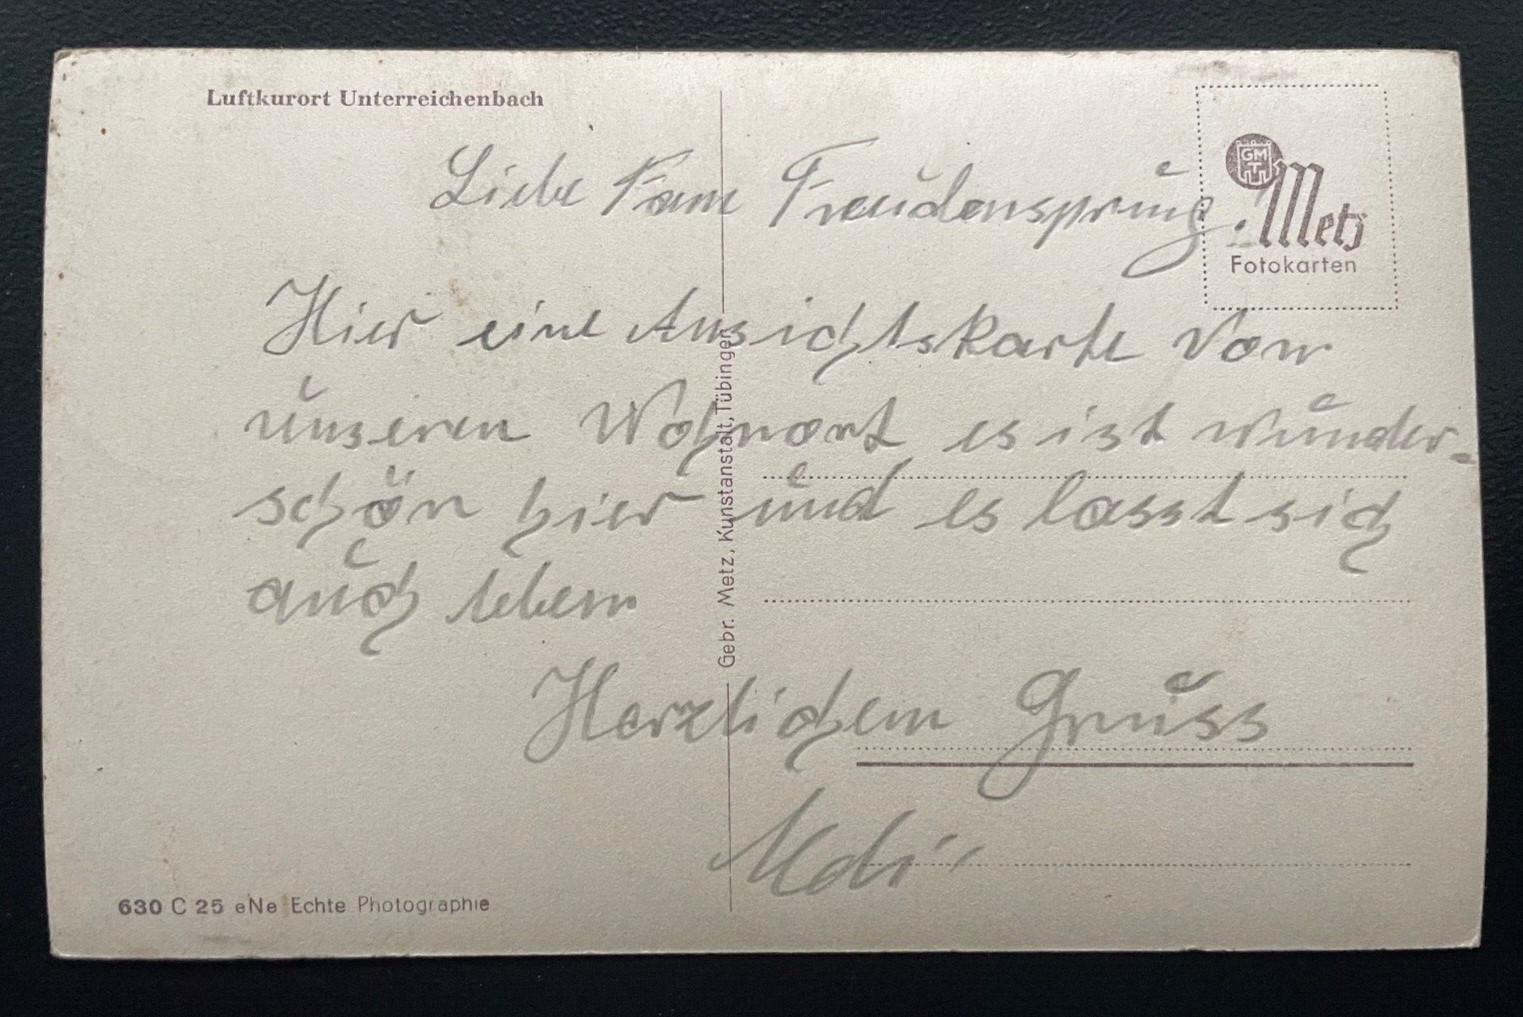 Luftkurort Unterreichenbach
GMT
Metz
Fotokarten
Liebe Fam Freudensprung.
Hier eine Ansichtskarte Vom
unseren Wohnort es ist wunder-
schön hier und es lasst sich
auch lebem
Herzlichem Gruss
Gebr. Metz, Kunstanstalt, Tübingen
630 C 25 eNe Echte Photographie